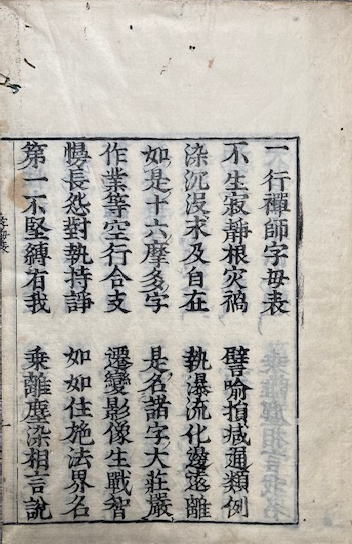 一行禪師字母表
不生寂靜根灾禍　譬喻損减通類例
染沉没求及自在　執瀑流化邊遠離
如是十六摩多字　是名諸字大莊嚴
作業等空行合支　遷變影像生戰智
慢長怨對執持諍　如如住施法界名
第一不堅縛有我　乘離塵染相言說
字母表